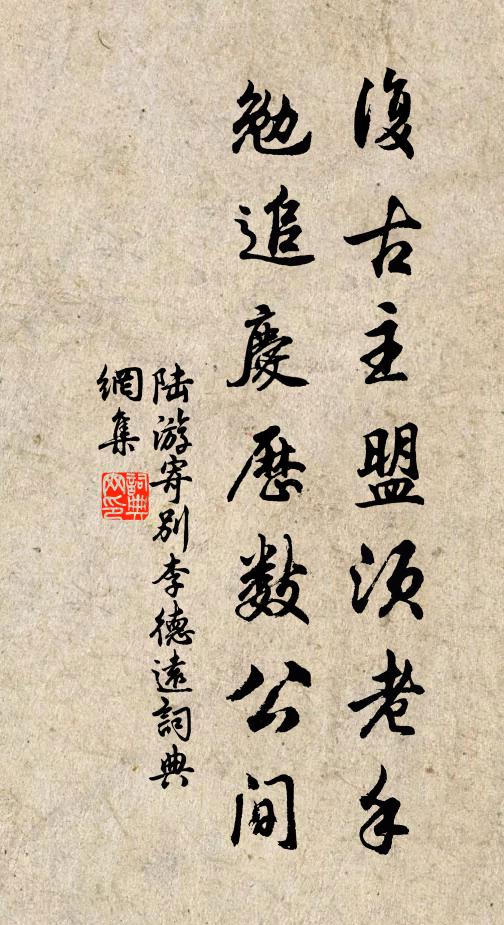 復古主盟須老手
勉追慶歷數公間
陸游寄別李德遠詞典
網集
詞典